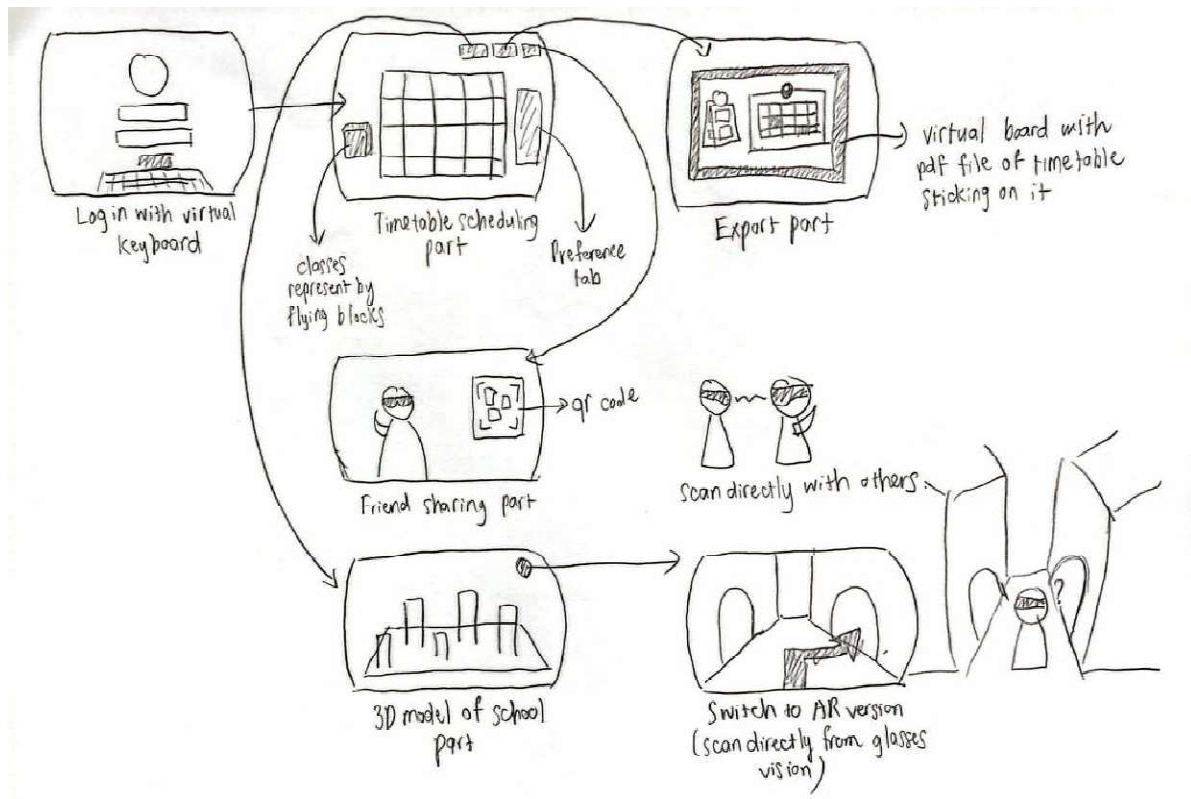 Login with virtual
keyboard
Timetable scheduling
part
classes
represent by
flying blocks
Preference
tab
Export part
virtual board with
pdf file of timetable
sticking on it
qr code
Friend sharing part
scan directly with others.
3D model of school
part
?
Switch to AR version
(scan directly from glasses
vision)